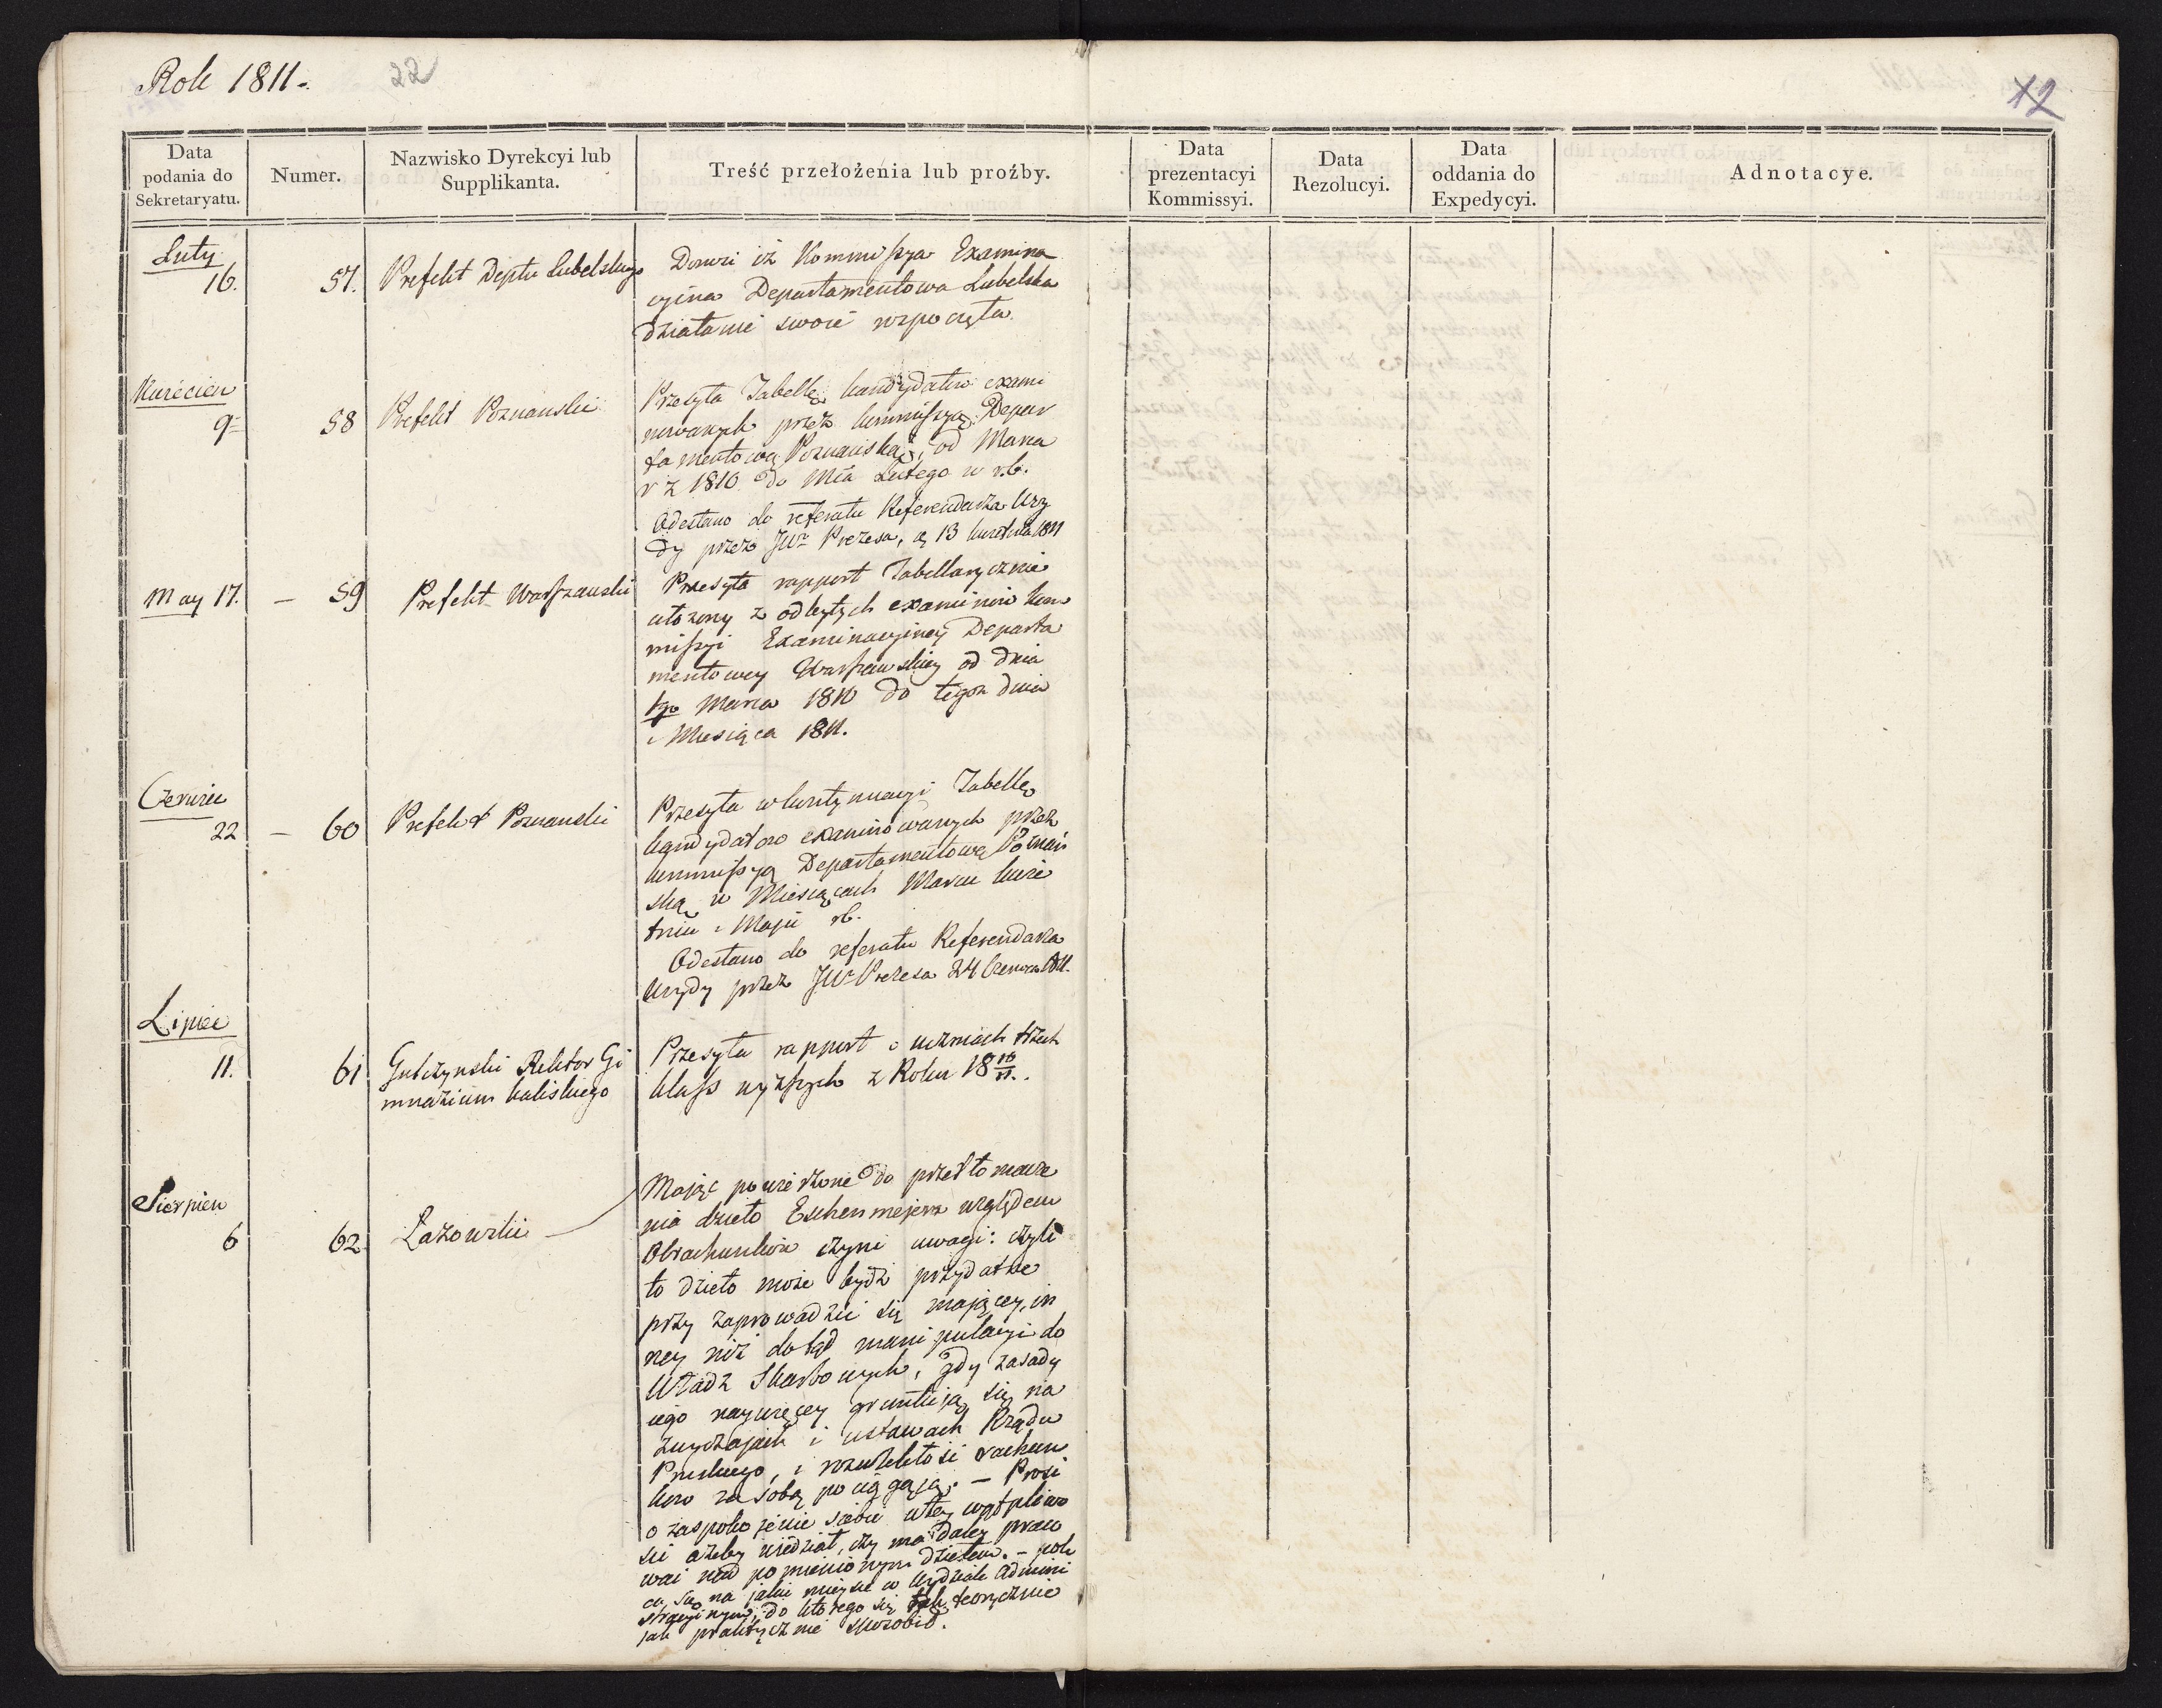 Rok 1811.
22
12
Data podania do Sekretaryatu.
Numer.
Nazwisko Dyrekcyi lub Supplikanta.
Treść przełożenia lub proźby.
Data prezentacyi Kommissyi.
Data Rezolucyi.
Data oddania do Expedycyi.
Adnotacye.
Luty
16.
57.
Prefekt Deptu Lubelskiego
Donosi iż Kommissya Examina
cyina Departamentowa Lubelska
działanie swoie rozpoczęła.
Kwiecień
9
58
Prefekt Poznanski
Przesyła Tabellę kandydatów exami
nowanych przez kommissyą Depar
tamentową Poznańską, od Marca
r z 1810 do Mca Lutego w r.b.
Odesłano do referatu Referendarza
przez JW Prezesa, 13 kwietnia 1811
May 17.
— 59
Prefekt Warszawski
Przesyła rapport Tabellarycznie
ułożony z odbytych examinów kom
missyi Examinacyiney Departa
mentowey Warszawskiey od dnia
1go Marca 1810 do tegoż dnia
i Miesiąca 1811.
Czerwiec
22
— 60
Prefekt Poznanski
Przesyła w kontynuacyi Tabellę
kandydatow examinowanych przez
kommissyą Departamentową Poznań
ską w Miesiącach Marcu kwie
tniu i Maju rb.
Odesłano do referatu Referendarza
przez JW Prezesa 24 Czerwca 1811.
Lipiec
11.
61
Gubczynski Rektor Gi
mnazium kaliskiego
Przesyła rapport o uczniach trzech
klass wyższych z Roku 18 10/11.
Sierpień
6
62.
Łazowski
Mając powierzone do przetłomacze
nia dzieło Eschenmejera względem
Obrachunków czyni uwagi: czyli
to dzieło może bydź przydatne
przy zaprowadzić się mającey, in
ney niż dotąd manipulacyi do
Władz Skarbowych, gdy zasady
iego naywięcey gruntują się na
zwyczajach i ustawach Rządu
Pruskiego, i rozwlekłości rachun
kow za sobą pociągają. — Prosi
o zaspokojenie siebie w tey wątpliwo
ści ażeby wiedział, czy ma daley praco
wać nad pomienionym dziełem. —
na jakie mieysce w Wydziale Admini
stracyinym, do którego się tak teorycznie
jak praktycznie sposobił.